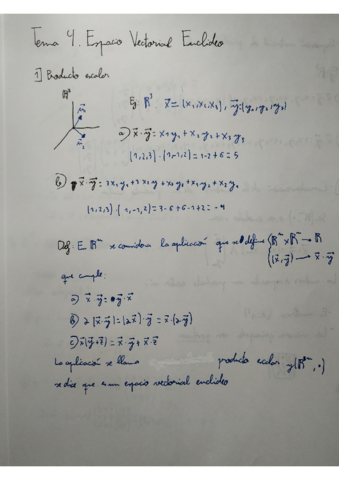 Tema 4. Espacio Vectorial Euclideo
1] Producto escalar
ℝ³
Ej: ℝ³ x⃗ = (x₁, x₂, x₃), y⃗ = (y₁, y₂, y₃)
a) x⃗ · y⃗ = x₁y₁ + x₂y₂ + x₃y₃
(1,2,3) · (1,-1,2) = 1-2+6 = 5
b) x⃗ · y⃗ = 3x₁y₁
(1,2,3) · (1,-1,2) = 3-6+6-1+2 = -4
Def: E ℝⁿ se considera la aplicación que se define ℝⁿ x ℝⁿ → ℝ
(x⃗, y⃗) → x⃗ · y⃗
que cumple:
a) x⃗ · y⃗ = y⃗ · x⃗
b) 2(x⃗ · y⃗) = (2x⃗) · y⃗ = x⃗ · (2y⃗)
c) x⃗(y⃗ + z⃗) = x⃗ · y⃗ + x⃗ · z⃗
La aplicación se llama producto escalar y (ℝⁿ, ·)
se dice que es un espacio vectorial euclideo